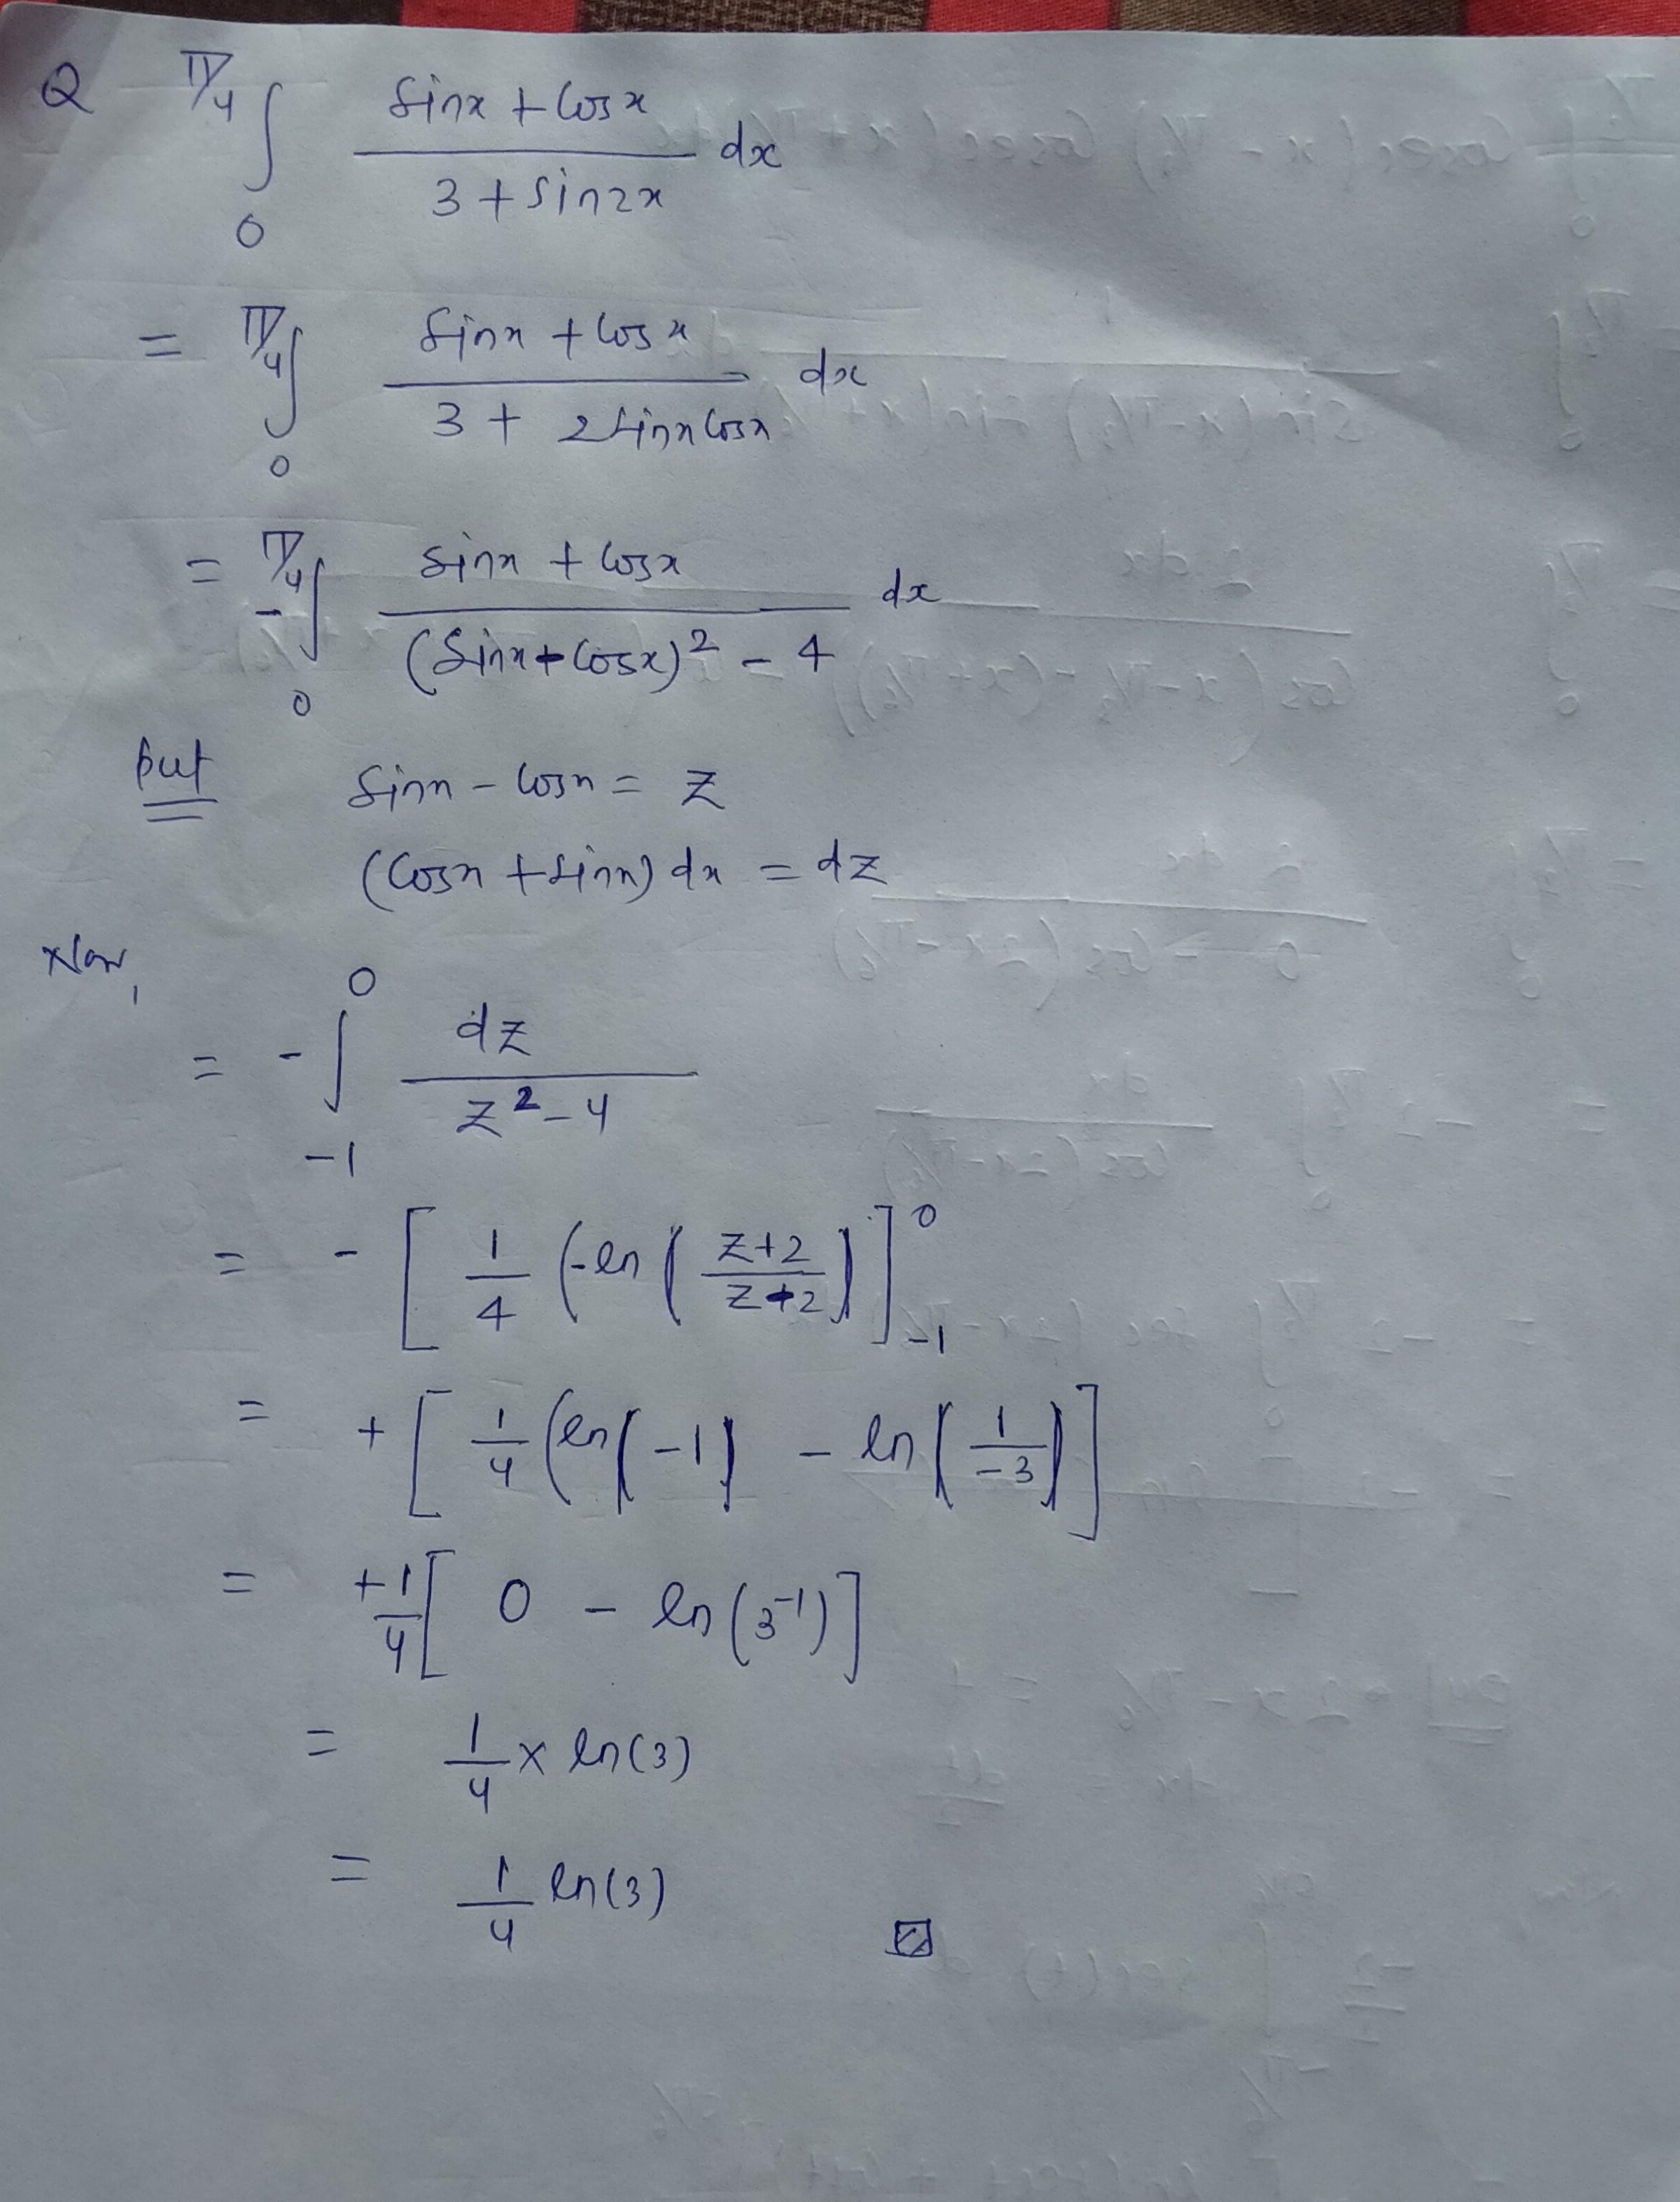 Q π/4∫0 (sinx + cosx)/(3 + sin2x) dx
= π/4∫0 (sinx + cosx)/(3 + 2sinxcosx) dx
= -π/4∫0 (sinx + cosx)/((sinx+cosx)² - 4) dx
put sinx - cosx = z
(cosx + sinx) dx = dz
Now,
= - 0∫-1 dz/(z² - 4)
= - [1/4 (-ln((z+2)/(z+2)))]0-1
= + [1/4 (ln(-1) - ln(1/-3))]
= +1/4 [0 - ln(3⁻¹)]
= 1/4 x ln(3)
= 1/4 ln(3)